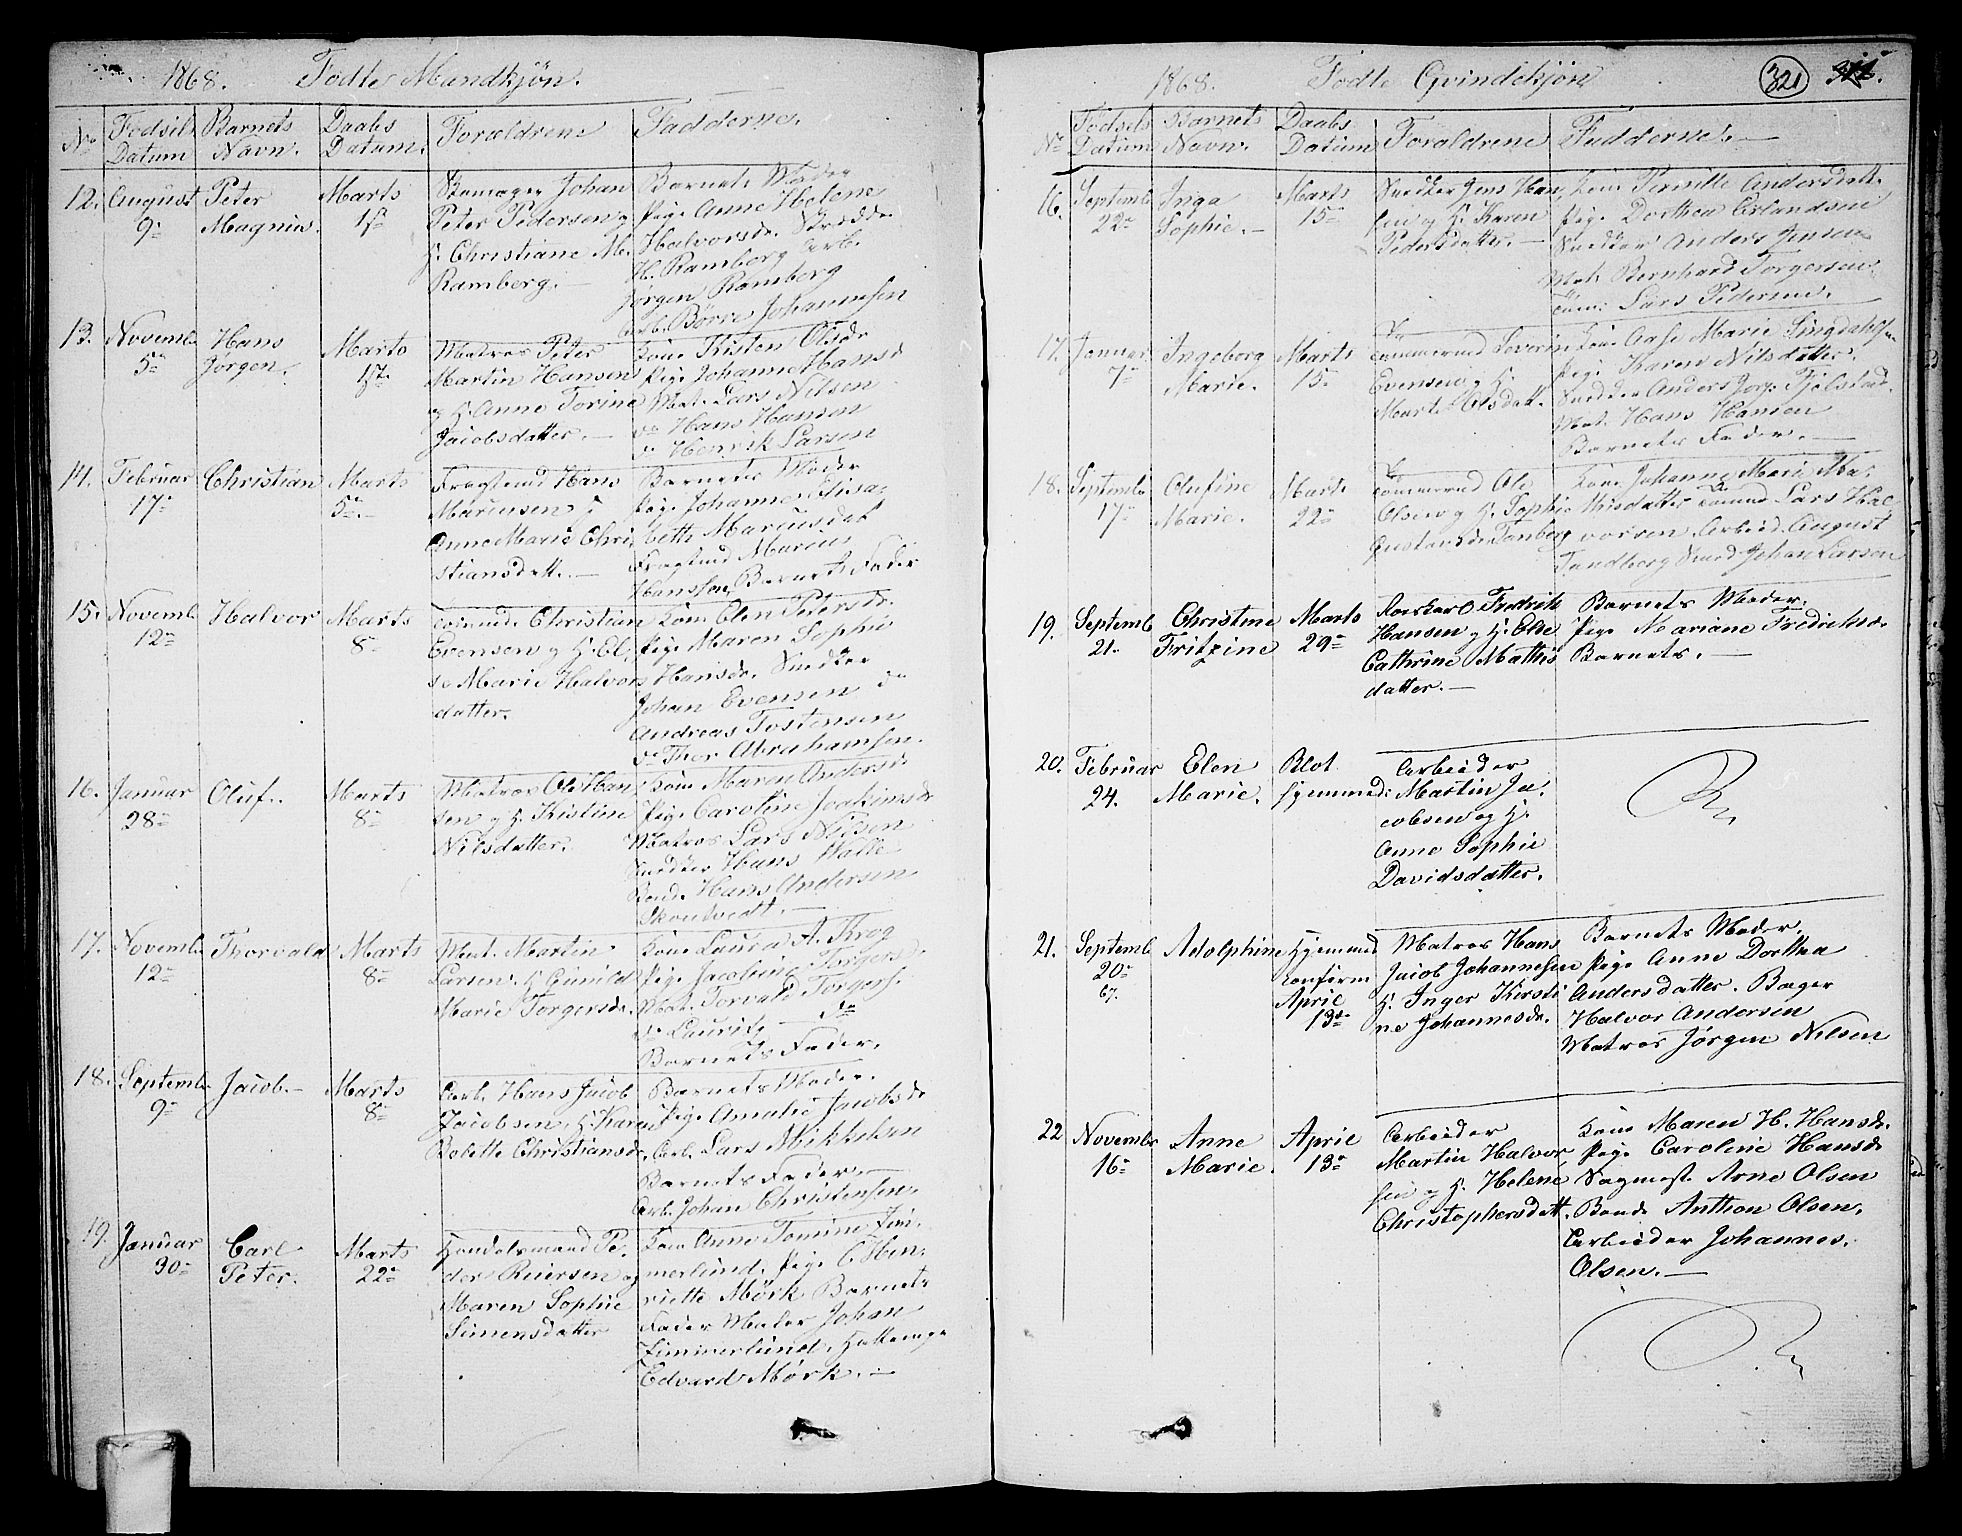 1868. Fødte Mandkjøn.
No Fødsels Datum Barnets Navn. Daabs Datum. Forældrene Fadderne.
12. August 9de Peter Magnus. Marts 1ste
Skomager Johan
Peter Pedersen og
H. Christiane M.
Ramberg.
Barnets Moder
Pige Anne Helene
Halvorsdr. Skrædder
H. Ramberg Arb.
Jørgen Ramberg
Arb. Børre Johannesen
13. Novemb. 5te Hans Jørgen. Marts
Matros Peter
Martin Hansen
og H. Anne Torine
Jacobsdatter.
Kone Kisten Olsdr
Pige Johanne Hansd
Mat. Lars Nilsen
do Hans Hansen
do Henrik Larsen
14. Februar 17de Christian Marts 5te
Fragtmd Hans
Mariusen H
Anne Marie Chri
stiansdatt.
Barnets Moder
Pige Johanne Elisa
beth Mariusdat
Fragtmd Marius
Hanssen, Barnets Fader
15. Novemb. 12te Halvor Marts 8de
Christian
Evensen og H. El
se Marie Halvors
datter.
Kone Elen Petersdr.
Pige Maren Sophie
Hansdr. Snedker
Johan Evensen do
Andreas Tostensen
do Thor Abrahamsen.
16. Januar 28de Oluf. Marts 8de
Matros Ole Han
sen og H. Kistine
Nilsdatter.
Kone Maren Andersd
Pige Caroline Joakimsd
Matros Lars Nilsen
Snedker Hans Walle
Bonde Hans Andersen
Skontvedt.
17. Novemb. 12te Thorvald Marts 8de
Mat. Martin
Larsen, H. Gunild
Marie Torgersdr.
Kone Laura A. Krog
Pige Jacobine Torgersd.
Mat. Torvald Torgers.
do Lauritz — do
Barnets Fader.
18. Septemb. 9de Jacob. Marts 8de
Arb. Hans Jacob
Jacobsen, H. Karen
Bolette Christiansdr.
Barnets Moder.
Pige Amalie Jacobsd
Arb. Lars Mikkelsen
Barnets Fader.
Arb. Johan Christensen.
19. Januar 30te Carl Peter. Marts 22de
Handelsmand Pe
der Reiersen og
Maren Sophie
Simensdatter
Kone Anne Tomine Zim
merlund, Pige Ellen
riette Mørk Barnets
Fader Maler Johan
Zimmerlund, Hattemager
Edvard Mørk.
1868. Fødte Qvindekjøn 321
No Fødsels Datum Barnets Navn. Daabs Datum Forældrene Fadderne.
16. Septemb 22de Inga Sophie. Marts 15de
Snedker Jens Han
sen og H. Karen
Pedersdatter.
Kone Pernille Andersdatt.
Pige Dorthea Erlandsen
Snedker Anders Jensen
Mat. Bernhard Torgersen
Lars Pedersen.
17. Januar 7de Ingeborg Marie. Marts 15de
Tømmermd Severin
Evensen og H.
Marte Olsdatt.
Kone Aase Marie
Pige Karen Nilsdatter.
Snedker Anders Jorg. Fjelstad
Mat. Hans Hansen
Barnets Fader.
18. Septemb 17de Olufine Marie. Marts 22de
Tømmermd Ole
Olsen og H. Sophie
Gustavsdr. Tanberg
Kone Johanne Marie Ma
thisdatter Tømmd Lars Hal
vorsen, Arbeid. August
Tandberg Smed Johan Larsen
19. Septemb 21. Christine Fritzine Marts 29de
Fredrik
Hansen og H. Else
Cathrine Mathis
datter.
Barnets Moder.
Pige Mariane Fredriksdr.
Barnets.
20. Februar 24. Elen Marie. Blot hjemmed:
Arbeider
Martin Ja
cobsen og H.
Anne Sophie
Davidsdatter.
21. Septemb 20de 67. Adolphine Hjemmed confirm April 13de
Matros Hans
Jacob Johannesen
H. Inger Kirsti
ne Johannesdr.
Barnets Moder.
Pige Anne Dorthea
Andersdatter. Bager
Halvor Andersen
Matros Jørgen Nilsen
22 Novembr 16de Anne Marie. April 13de
Arbeider
Martin Halvor
sen og H. Helene
Christophersdatt.
Kone Maren H. Hansdr.
Pige Caroline Hansdr
Sagmest. Arne Olsen
Bonde Anthon Olsen,
Arbeider Johannes.
Olsen.